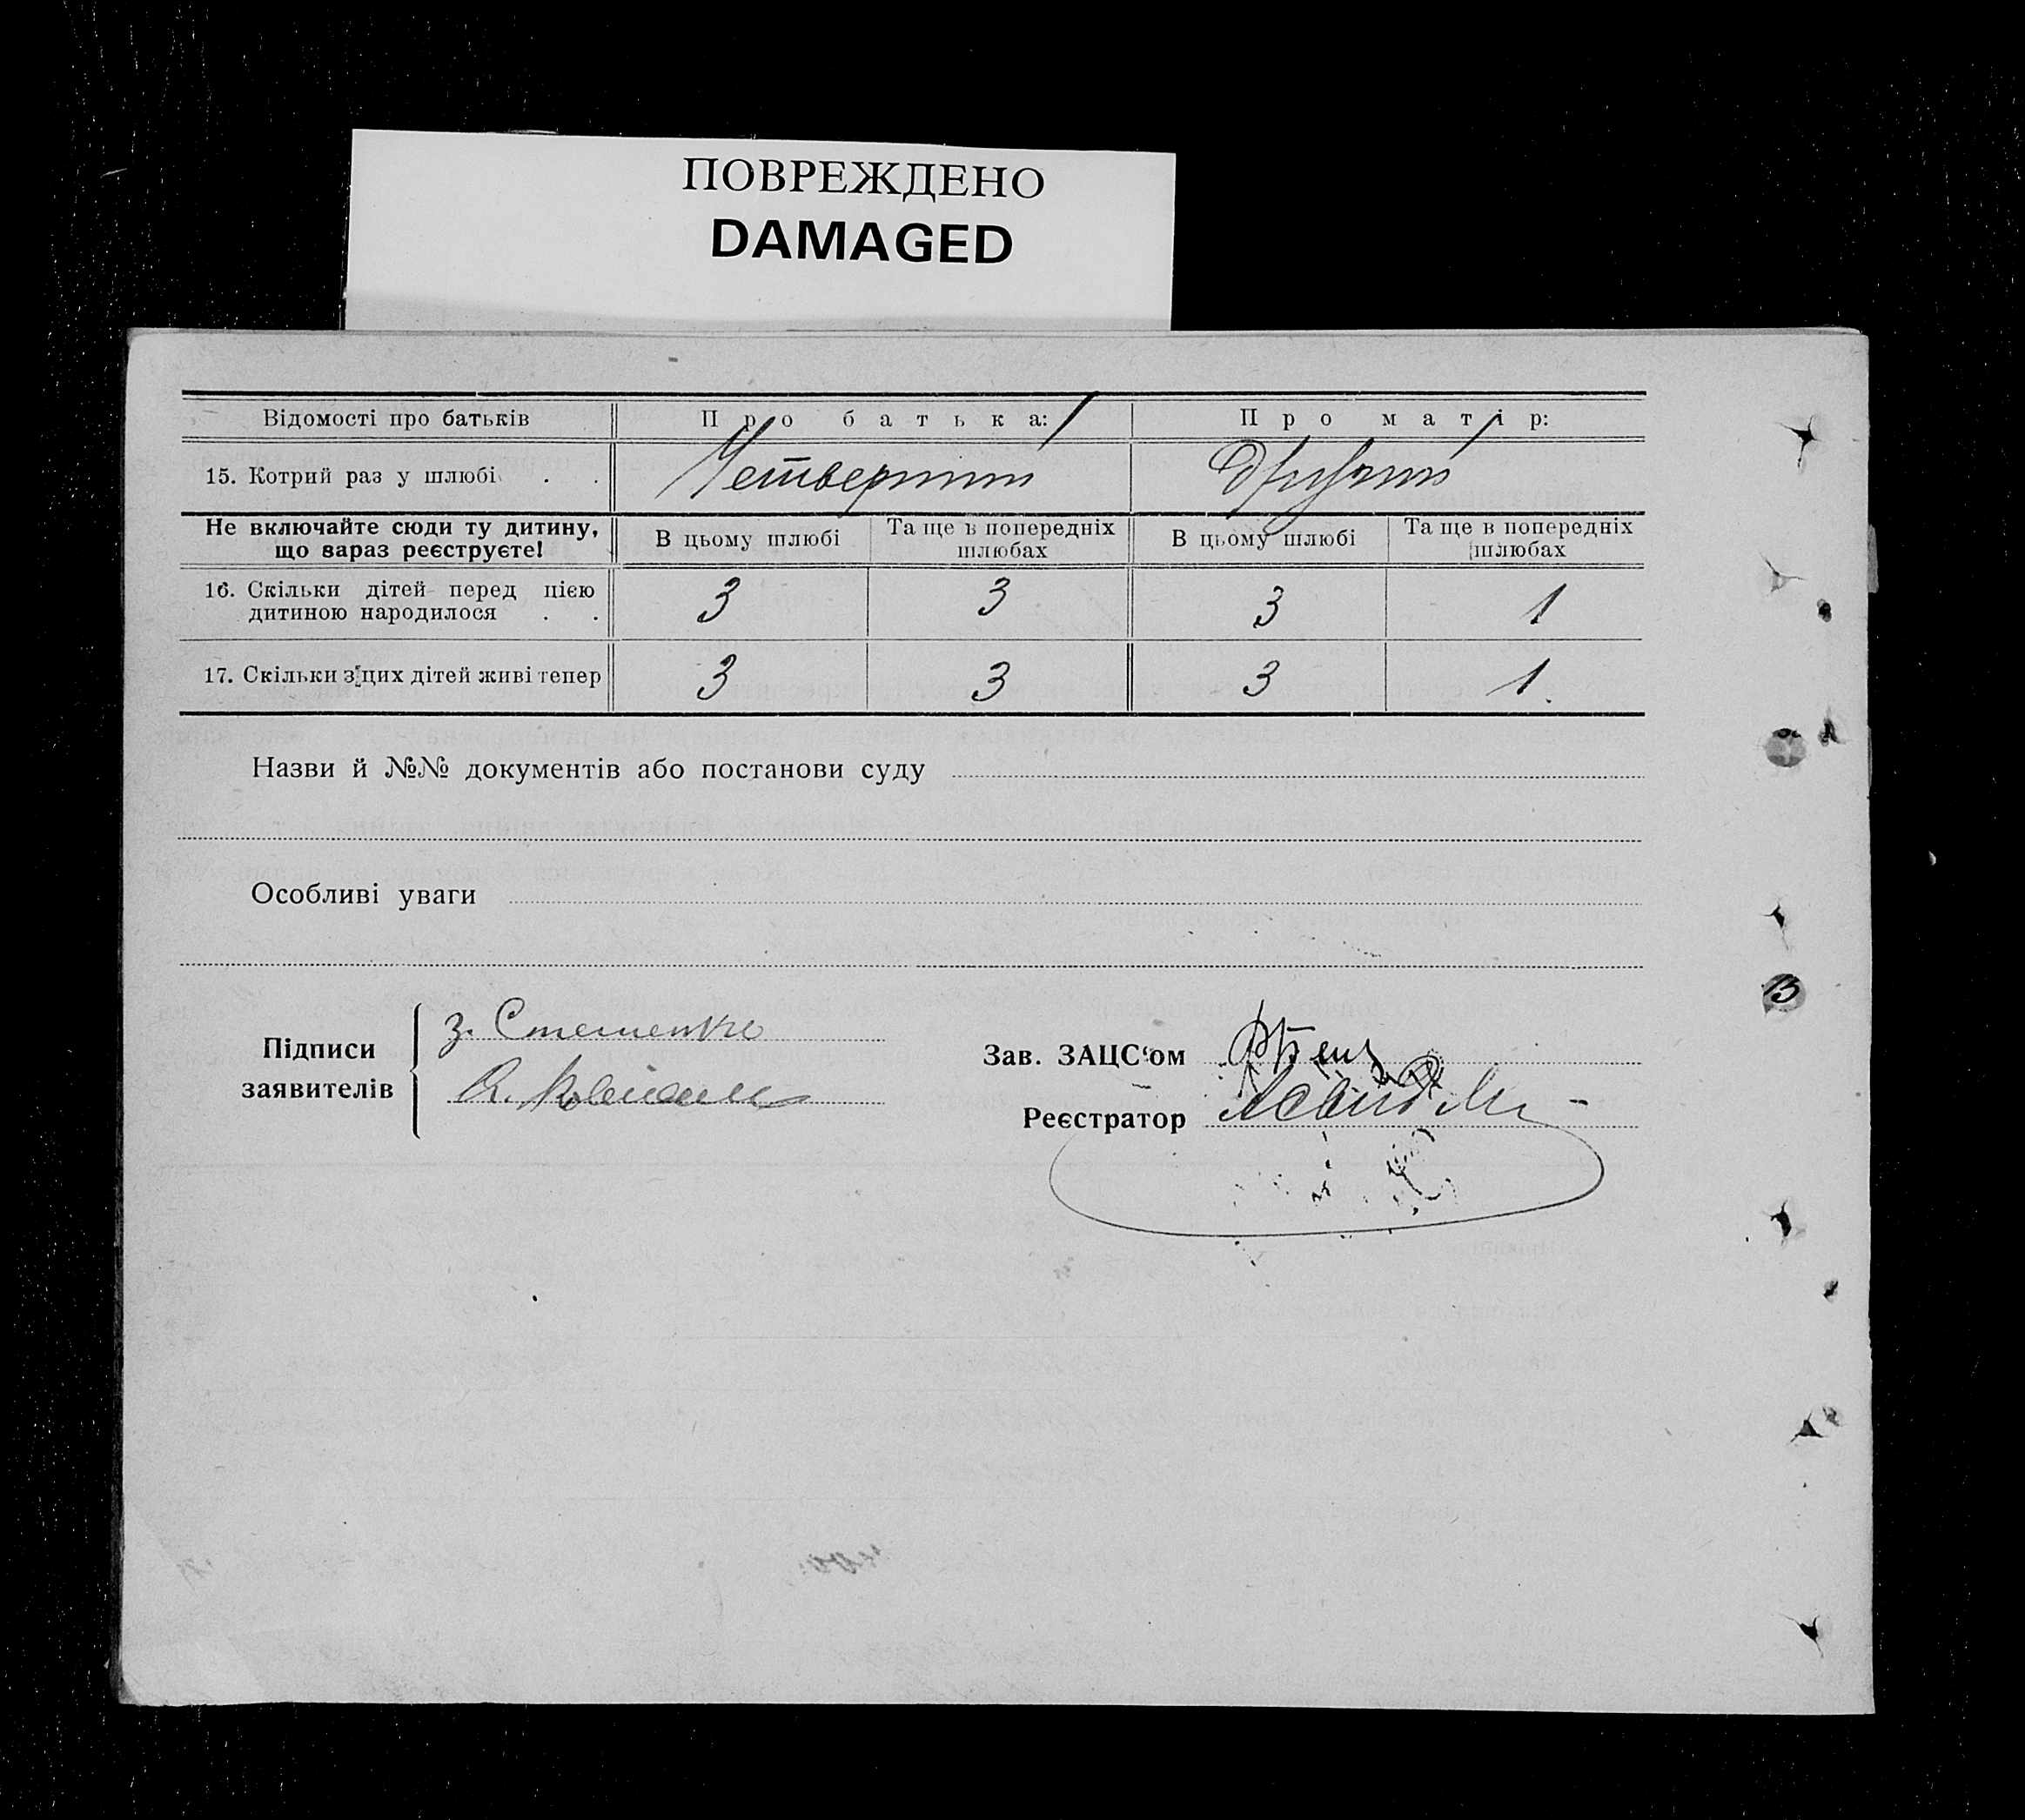 ПОВРЕЖДЕНО
DAMAGED
Відомості про батьків Про батька: Про матір:
15. Котрий раз у шлюбі . . Четвертий Другий
Не включайте сюди ту дитину, що вараз реєструєте! В цьому шлюбі Та ще в попередніх шлюбах В цьому шлюбі Та ще в попередніх шлюбах
16. Скільки дітей перед цією дитиною народилося . . 3 3 3 1
17. Скільки з цих дітей живі тепер 3 3 3 1
Назви й №№ документів або постанови суду
Особливі уваги
Підписи заявителів
З. Стешенко
Зав. ЗАЦС'ом
Реєстратор